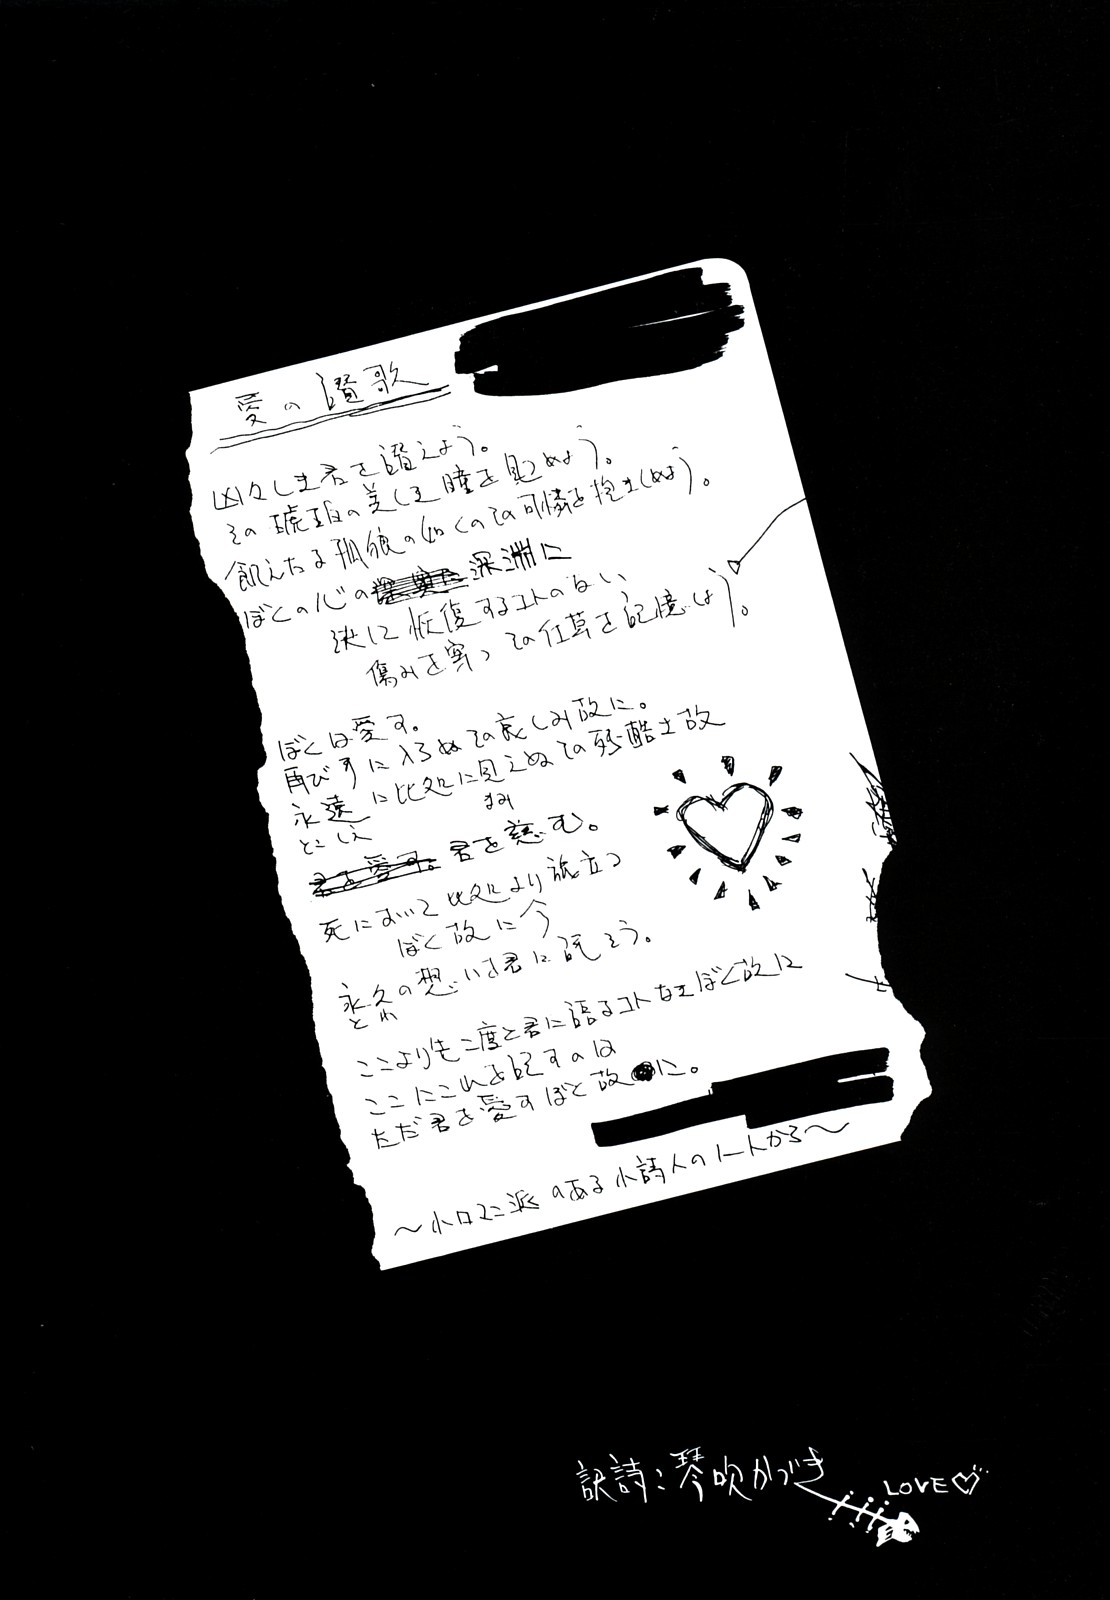 愛の讃歌
凶々しき君を讃えよう。
その琥珀の美しき瞳を見つめよう。
飢えたる孤狼の如くのその可憐を抱きしめよう。
ぼくの心の 深淵に
決して恢復するコトのない
傷みを穿つ その仕草を記憶しよう。
ぼくは愛す。
再び手に入らぬその哀しみ故に。
永遠に此処に見えぬその残酷さ故
とこしえ
まみ
君を愛す。君を慈む。
死において此処より旅立つ
ぼく故に今
永久の想いを君に託そう。
とわ
ここよりも二度と君に語るコトなきぼく故に
ここにこれを記すのは
ただ君を愛すぼく故に。
〜小ロマン派のある小詩人のノートから〜
訳詩:琴吹かづき
LOVE